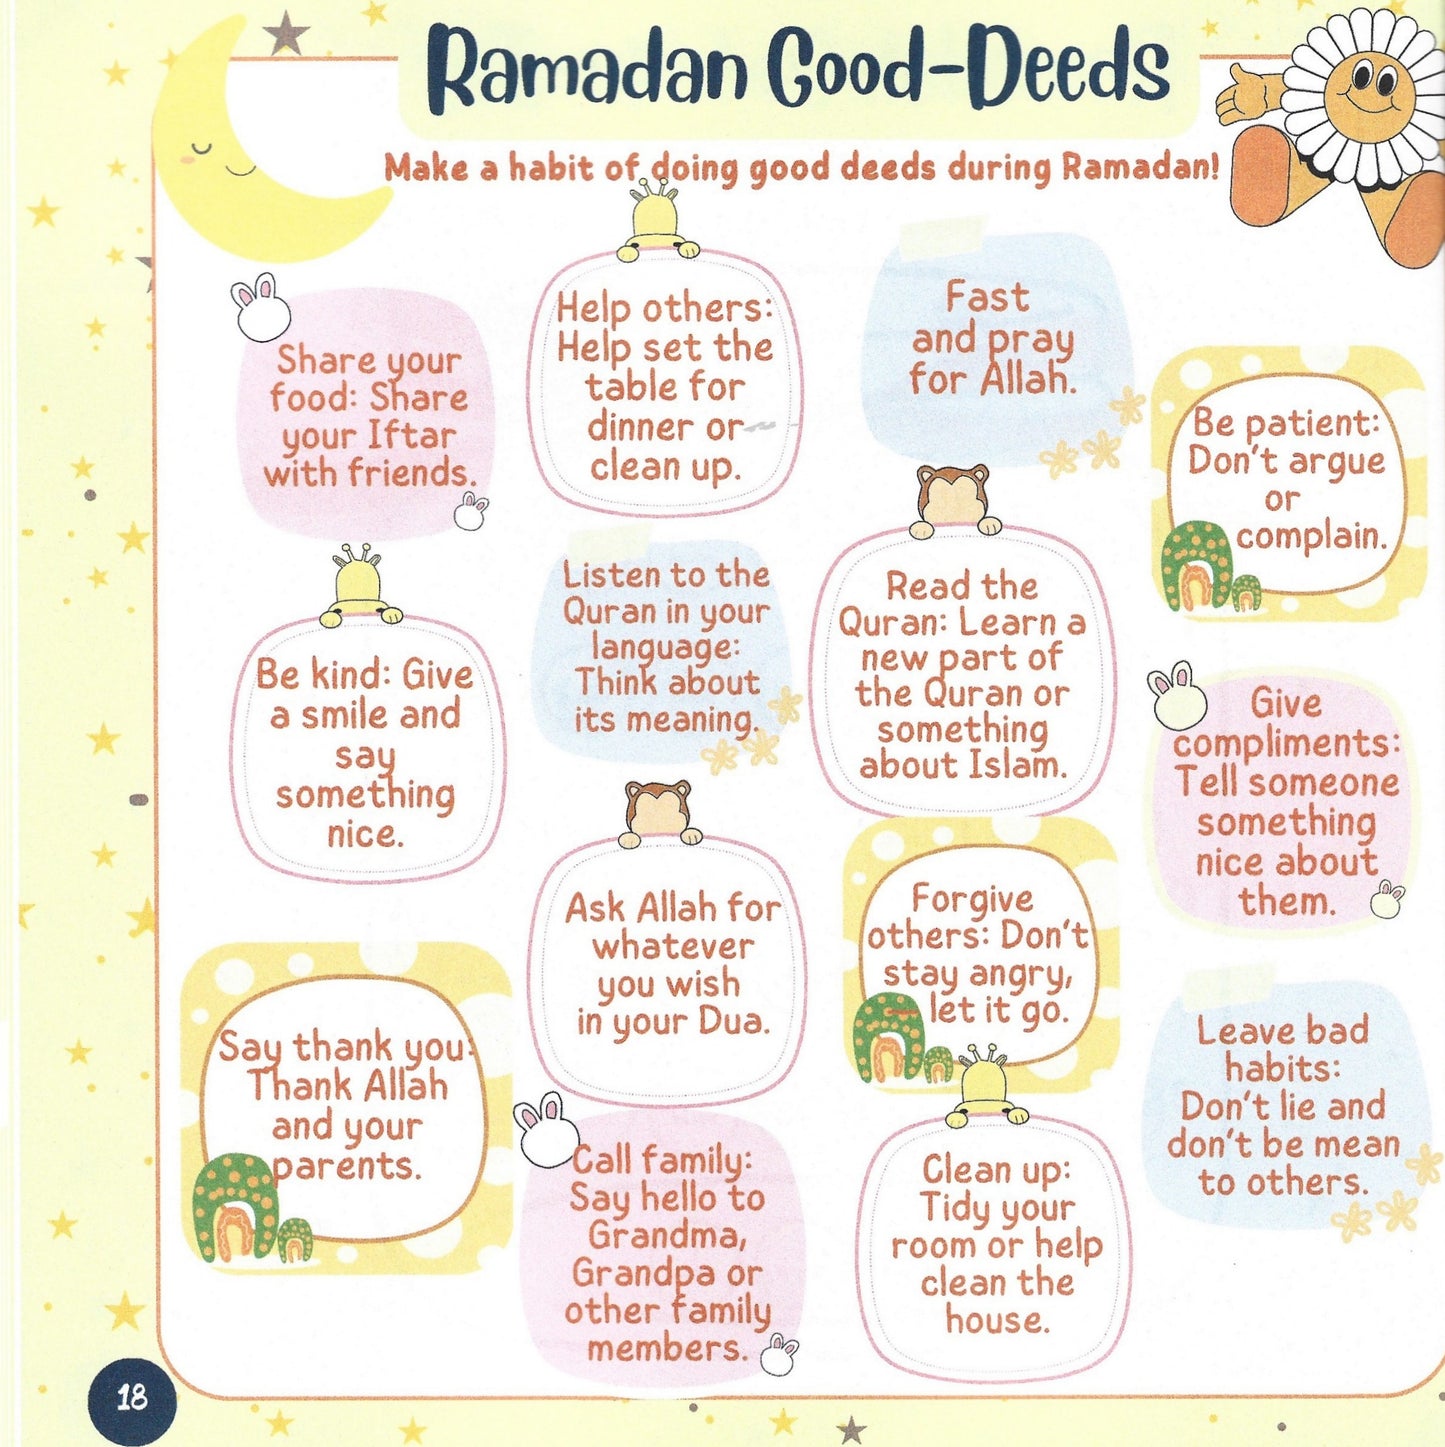 Ramadan Good-Deeds
Make a habit of doing good deeds during Ramadan!
Share your
food: Share
your Iftar
with friends.
Help others:
Help set the
table for
dinner or
clean up.
Fast
and pray
for Allah.
Be patient:
Don't argue
or
complain.
Be kind: Give
a smile and
say
something
nice.
Listen to the
Quran in your
language:
Think about
its meaning.
Read the
Quran: Learn a
new part of
the Quran or
something
about Islam.
Give
compliments:
Tell someone
something
nice about
them.
Say thank you:
Thank Allah
and your
parents.
Ask Allah for
whatever
you wish
in your Dua.
Forgive
others: Don't
stay angry,
let it go.
Leave bad
habits:
Don't lie and
don't be mean
to others.
Call family:
Say hello to
Grandma,
Grandpa or
other family
members.
Clean up:
Tidy your
room or help
clean the
house.
18